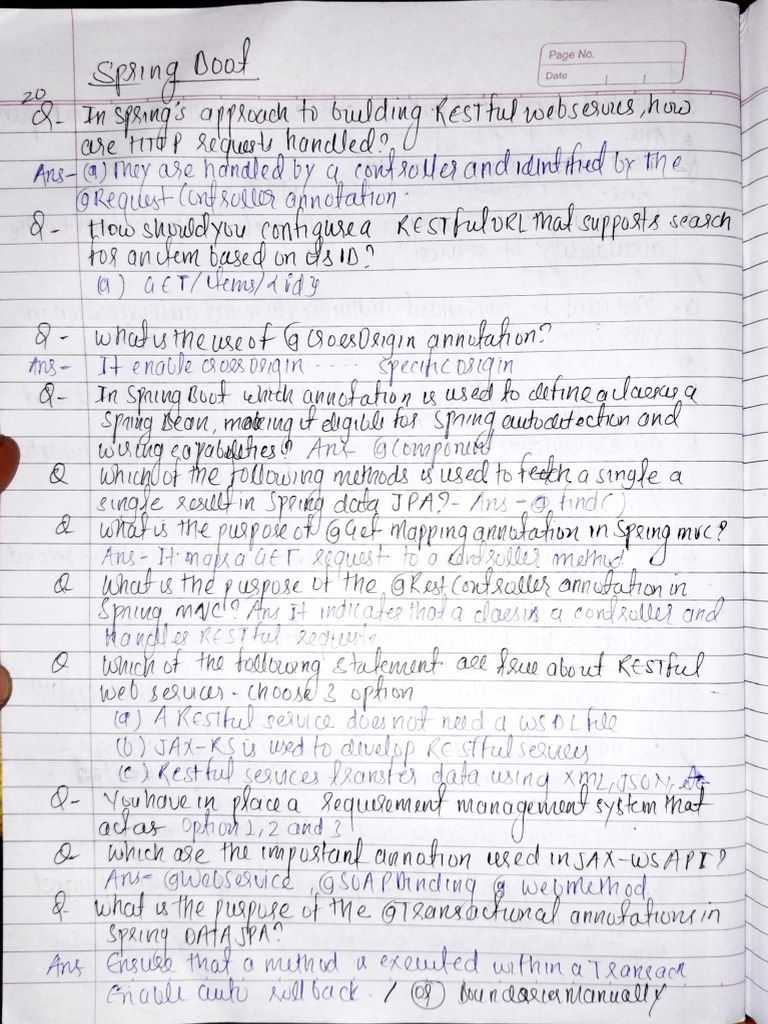 Spring Boot
Page No.
Date
20
Q- In Spring's approach to building RESTful webservices, how
are HTTP requests handled?
Ans- (a) They are handled by a controller and identified by the
@Request Controller annotation.
Q- How should you configure a RESTful URL that supports search
for an item based on its ID?
(a) GET/items/{id}
Q- What is the use of @CrossOrigin annotation?
Ans- It enable cross origin ..... specific origin
Q- In Spring Boot which annotation is used to define a class as a
Spring Bean, making it eligible for Spring autodetection and
wiring capabilities? Ans- @Component
Q which of the following methods is used to fetch a single a
single result in Spring data JPA?- Ans - @ find()
Q what is the purpose of @Get Mapping annotation in Spring mvc?
Ans- It maps a GET request to a controller method
Q What is the purpose of the @RestController annotation in
Spring mvc? Ans It indicates that a class is a controller and
Handles RESTful requests
Q which of the following statement are true about RESTful
web services - choose 3 option
(a) A Restful service does not need a WSDL file
(b) JAX-RS is used to develop RESTful services
(c) Restful services transfer data using XML, JSON, etc
Q- You have in place a requirement management system that
act as Option 1, 2 and 3
Q which are the important annotion used in JAX-WS API?
Ans- @Webservice, @SOAPBinding @ webmethod
Q- what is the purpose of the @Transactional annotations in
Spring DATA JPA?
Ans Ensure that a method is executed within a Transact
Enable auto rollback. / (or) Boundaries Manually